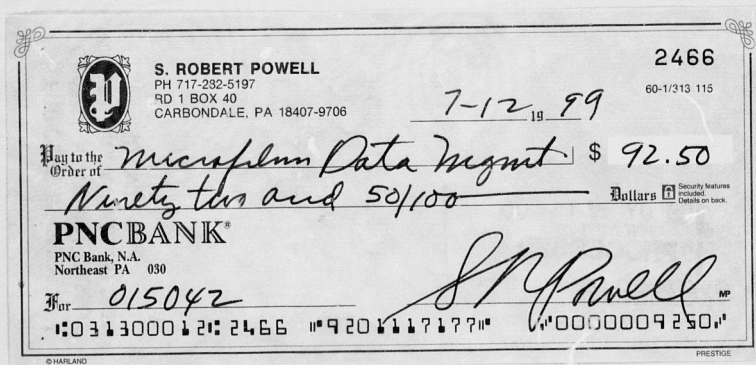 2466
S. ROBERT POWELL
PH 717-282-5197
RD 1 BOX 40
CARBONDALE, PA 18407-9706
60-1/313 115
7-12 19 99
Pay to the Order of Microfilm Data Mgmt $ 92.50
Ninety two and 50/100 Dollars
Security features included. Details on back.
PNCBANK®
PNC Bank, N.A.
Northeast PA 030
For 015042
S R Powell
MP
⑆031300012⑆ 2466 ⑈9201117177⑈ ⑇0000009250⑇
© HARLAND
PRESTIGE